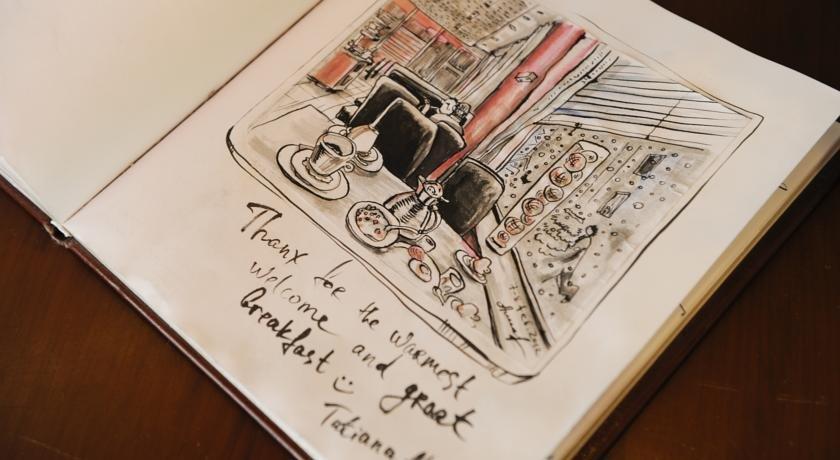 Thanx for the warmest
welcome and great
breakfast :)
Tatiana